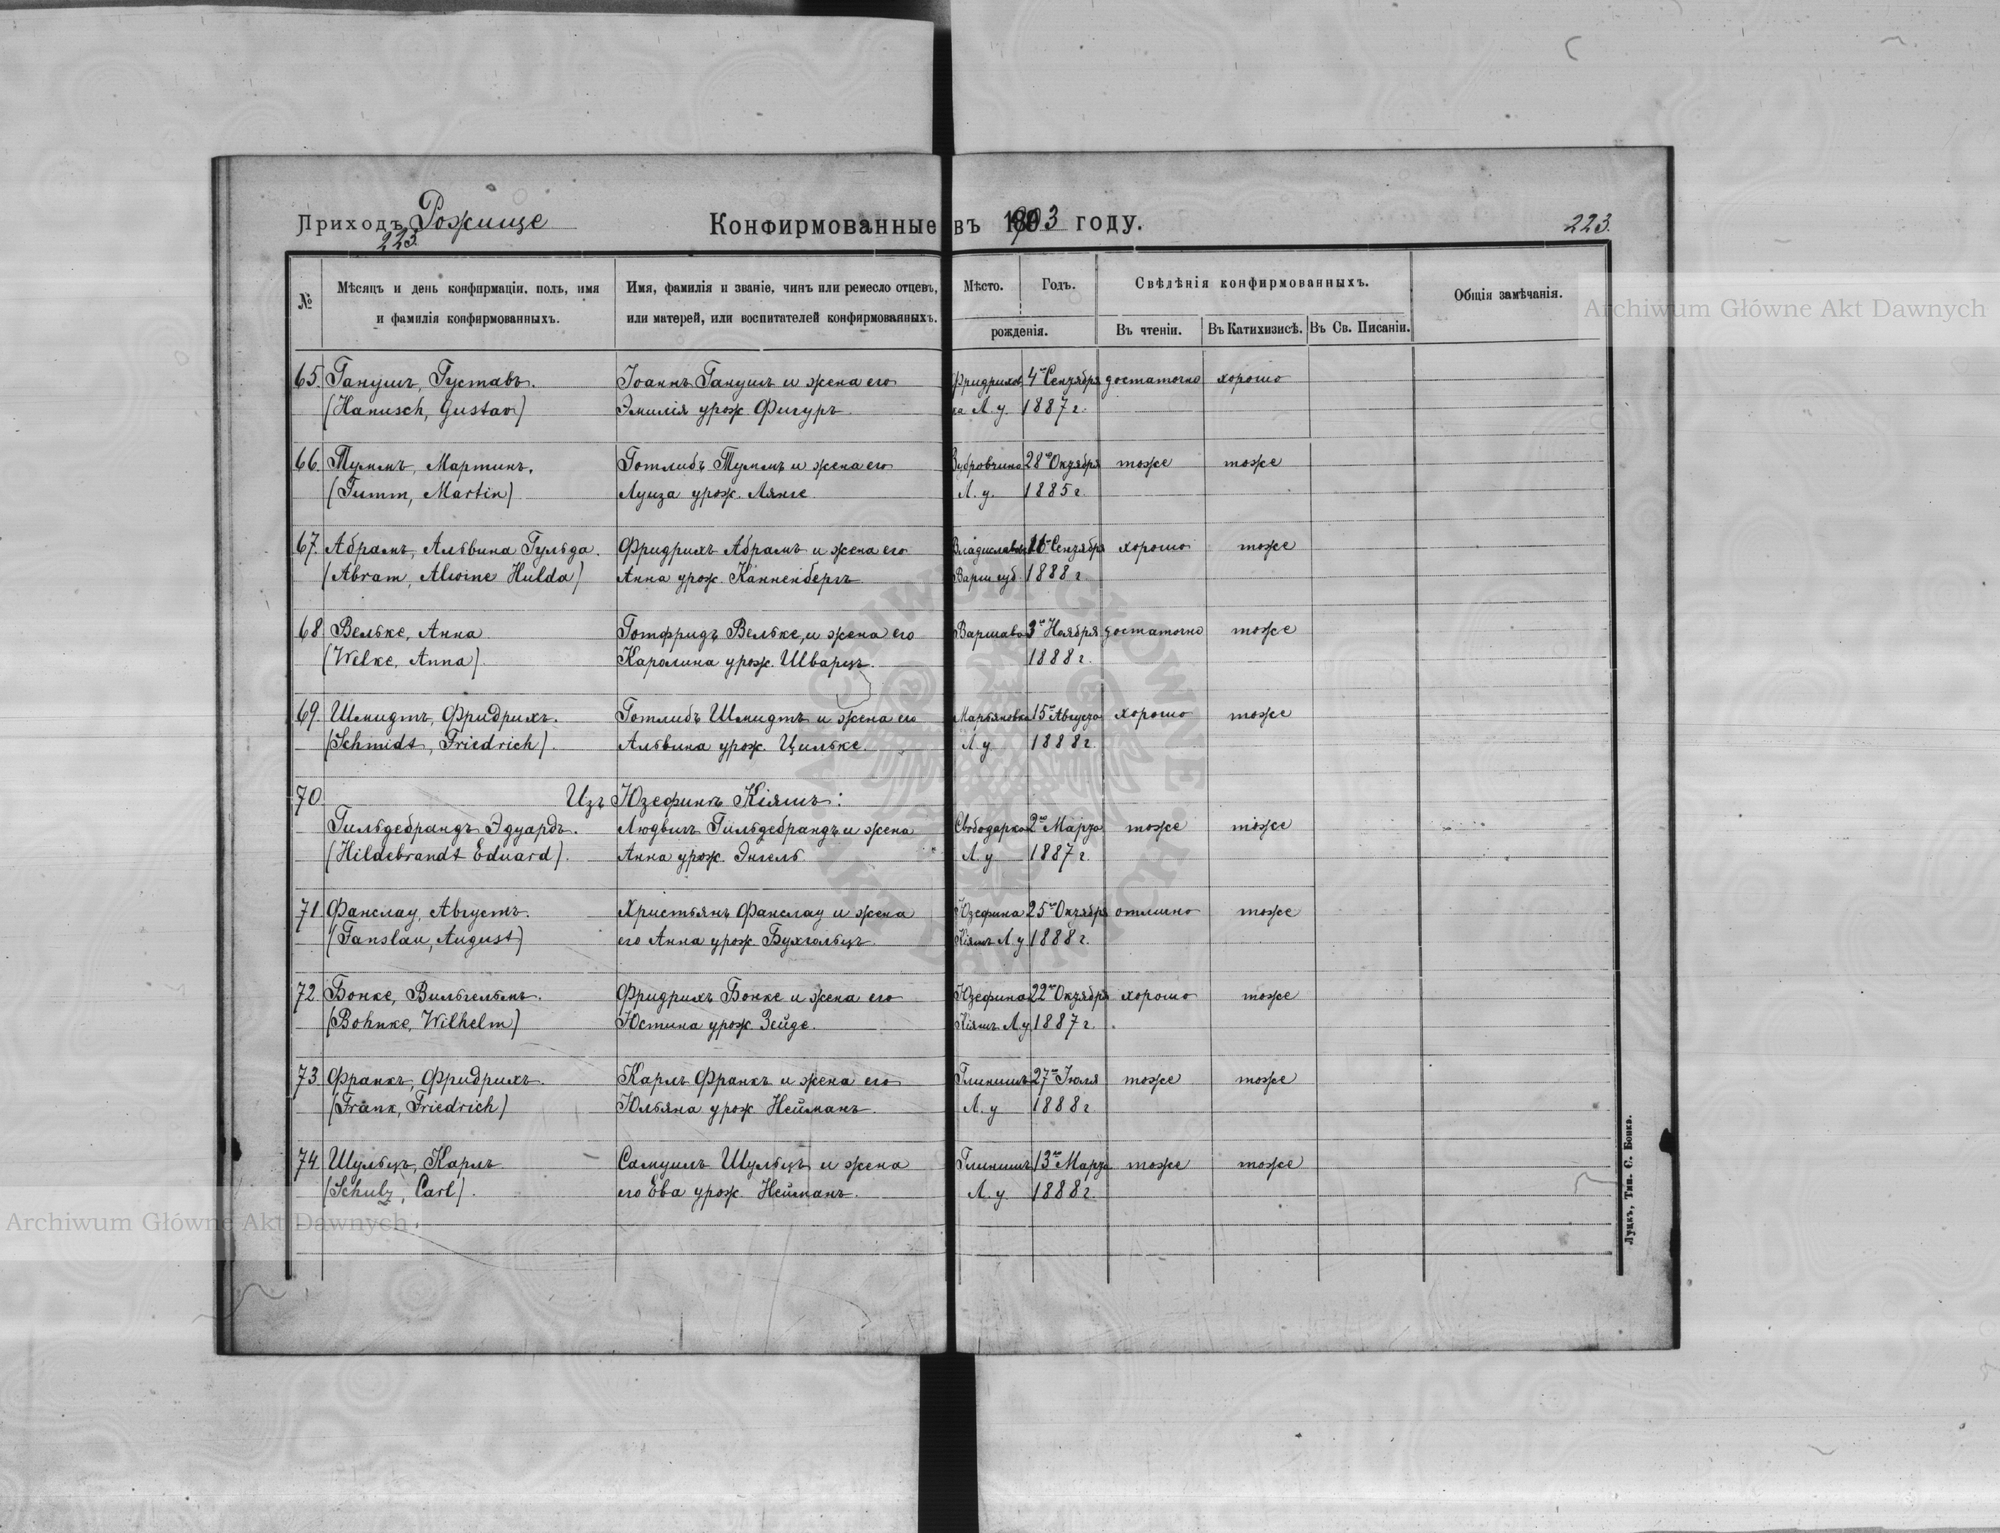 Приходъ Рожище
223.
Конфирмованные въ 1903 году.
223.
№
Мѣсяцъ и день конфирмаціи, полъ, имя
и фамилія конфирмованныхъ.
Имя, фамилія и званіе, чинъ или ремесло отцевъ,
или матерей, или воспитателей конфирмованныхъ.
Мѣсто.
Годъ.
рожденія.
Свѣдѣнія конфирмованныхъ.
Въ чтеніи.
Въ Катихизисѣ.
Въ Св. Писаніи.
Общія замѣчанія.
65. Ганушъ, Густавъ. Іоаннъ Ганушъ и жена его Фридрихов 4го Сентября достаточно хорошо
(Hanusch, Gustav) Эмилія урож. Фигуръ ка Л. у. 1887 г.
66. Туммъ, Мартинъ. Готлибъ Туммъ и жена его 28го Октября тоже тоже
(Tumm, Martin) Луиза урож. Лянге Л. у. 1885 г.
67. Абрамъ, Альвина Гульда. Фридрихъ Абрамъ и жена его Сентября хорошо тоже
(Abram, Alwine Hulda) Анна урож. Канненбергъ Варш губ 1888 г
68 Вельке, Анна Готфридъ Вельке, и жена его Варшава 3го Ноября достаточно тоже
(Welke, Anna) Каролина урож. Шварцъ. 1888 г.
69. Шмидтъ, Фридрихъ. Готлибъ Шмидтъ и жена его Марьяновка 15го Августа хорошо тоже
(Schmidt, Friedrich). Альвина урож. Цильке. Л. у. 1888 г.
70 Изъ Юзефинъ Кіяшъ:
Гильдебрандъ Эдуардъ. Людвигъ Гильдебрандъ и жена 2го Марта тоже тоже
(Hildebrandt Eduard). Анна урож. Энгель Л. у 1887 г.
71 Фанслау, Августъ. Христьянъ Фанслау и жена Юзефина 25го Октября отлично тоже
(Fanslau, August) его Анна урож Бухгольцъ Кіяшъ Л. у 1888 г.
72. Бонке, Вильгельмъ. Фридрихъ Бонке и жена его Юзефина 22го Октября хорошо тоже
(Bohnke, Wilhelm) Юстина урож. Зейде. Кіяшъ Л. у 1887 г.
73 Франкъ, Фридрихъ. Карлъ Франкъ и жена его Глинищъ 27го Іюля тоже тоже
(Frank, Friedrich) Юльяна урож Нейманъ. Л. у 1888 г
74 Шульцъ, Карлъ Самуилъ Шульцъ и жена Глинищъ 13го Марта тоже тоже
(Schulz, Carl). его Ева урож. Нейманъ. Л. у. 1888 г.
Луцкъ, Тип. С. Бонкъ.
Archiwum Główne Akt Dawnych
Archiwum Główne Akt Dawnych
ARCHIWUM GŁÓWNE AKT DAWNYCH